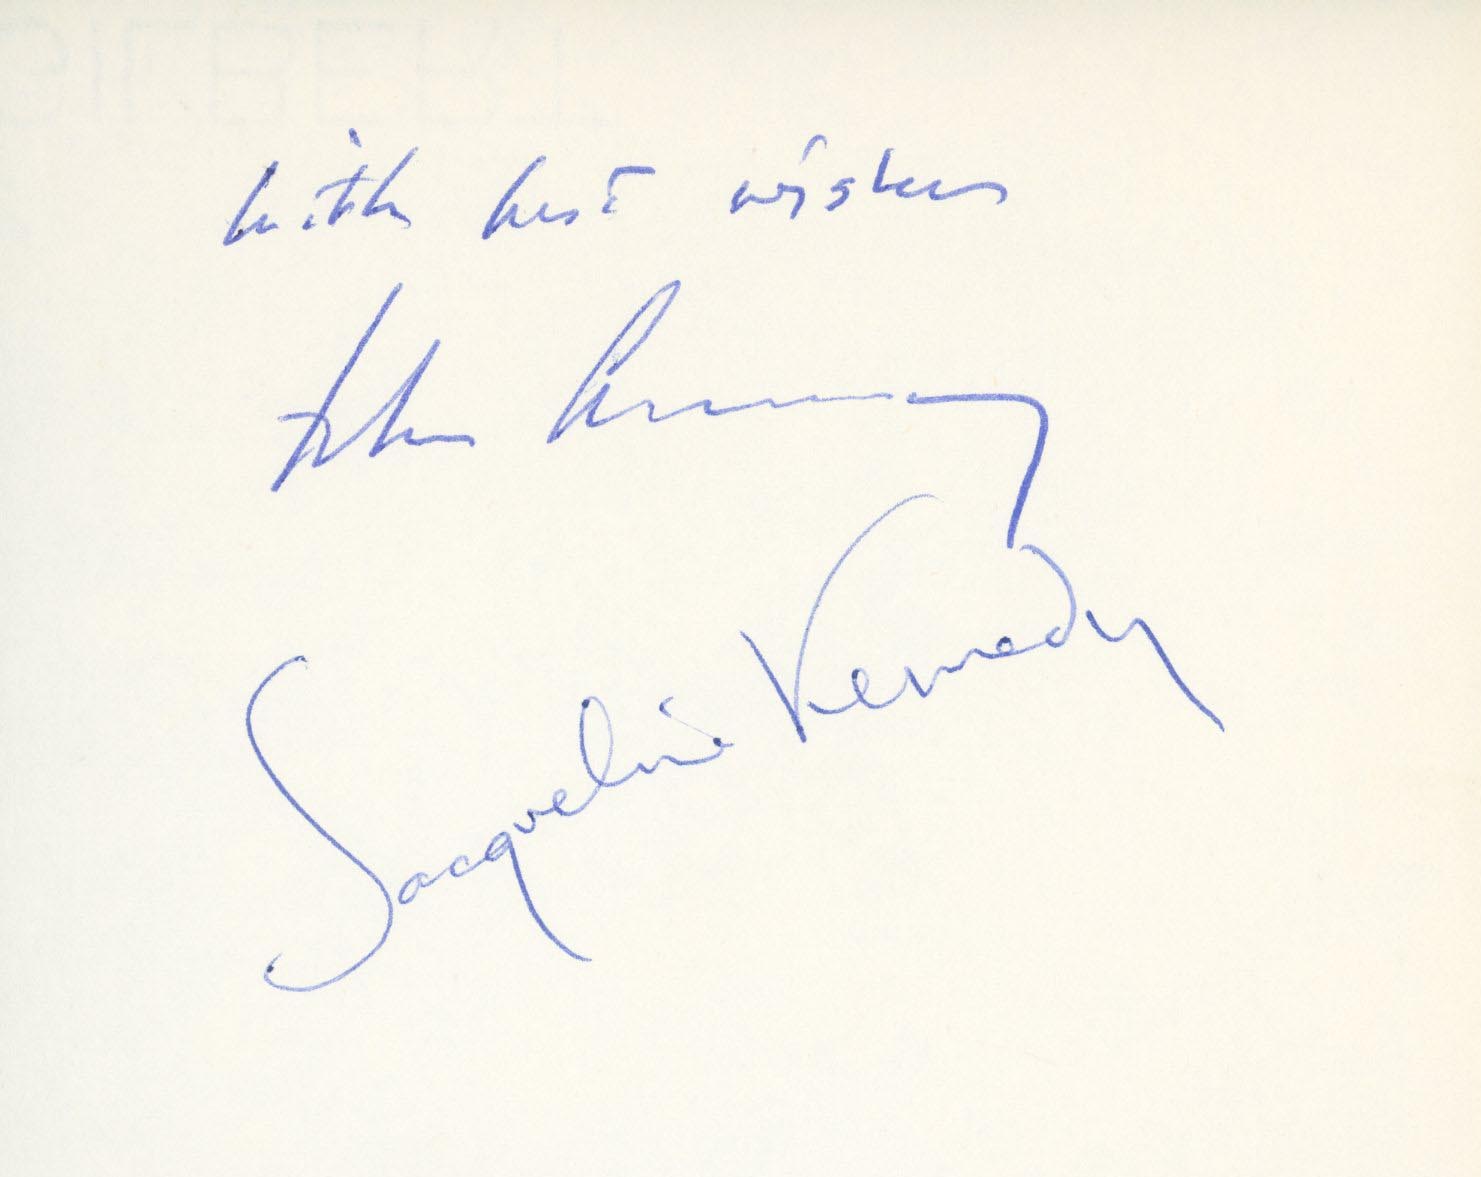 GILBERT
with best wishes
John Kennedy
Jacqueline Kennedy